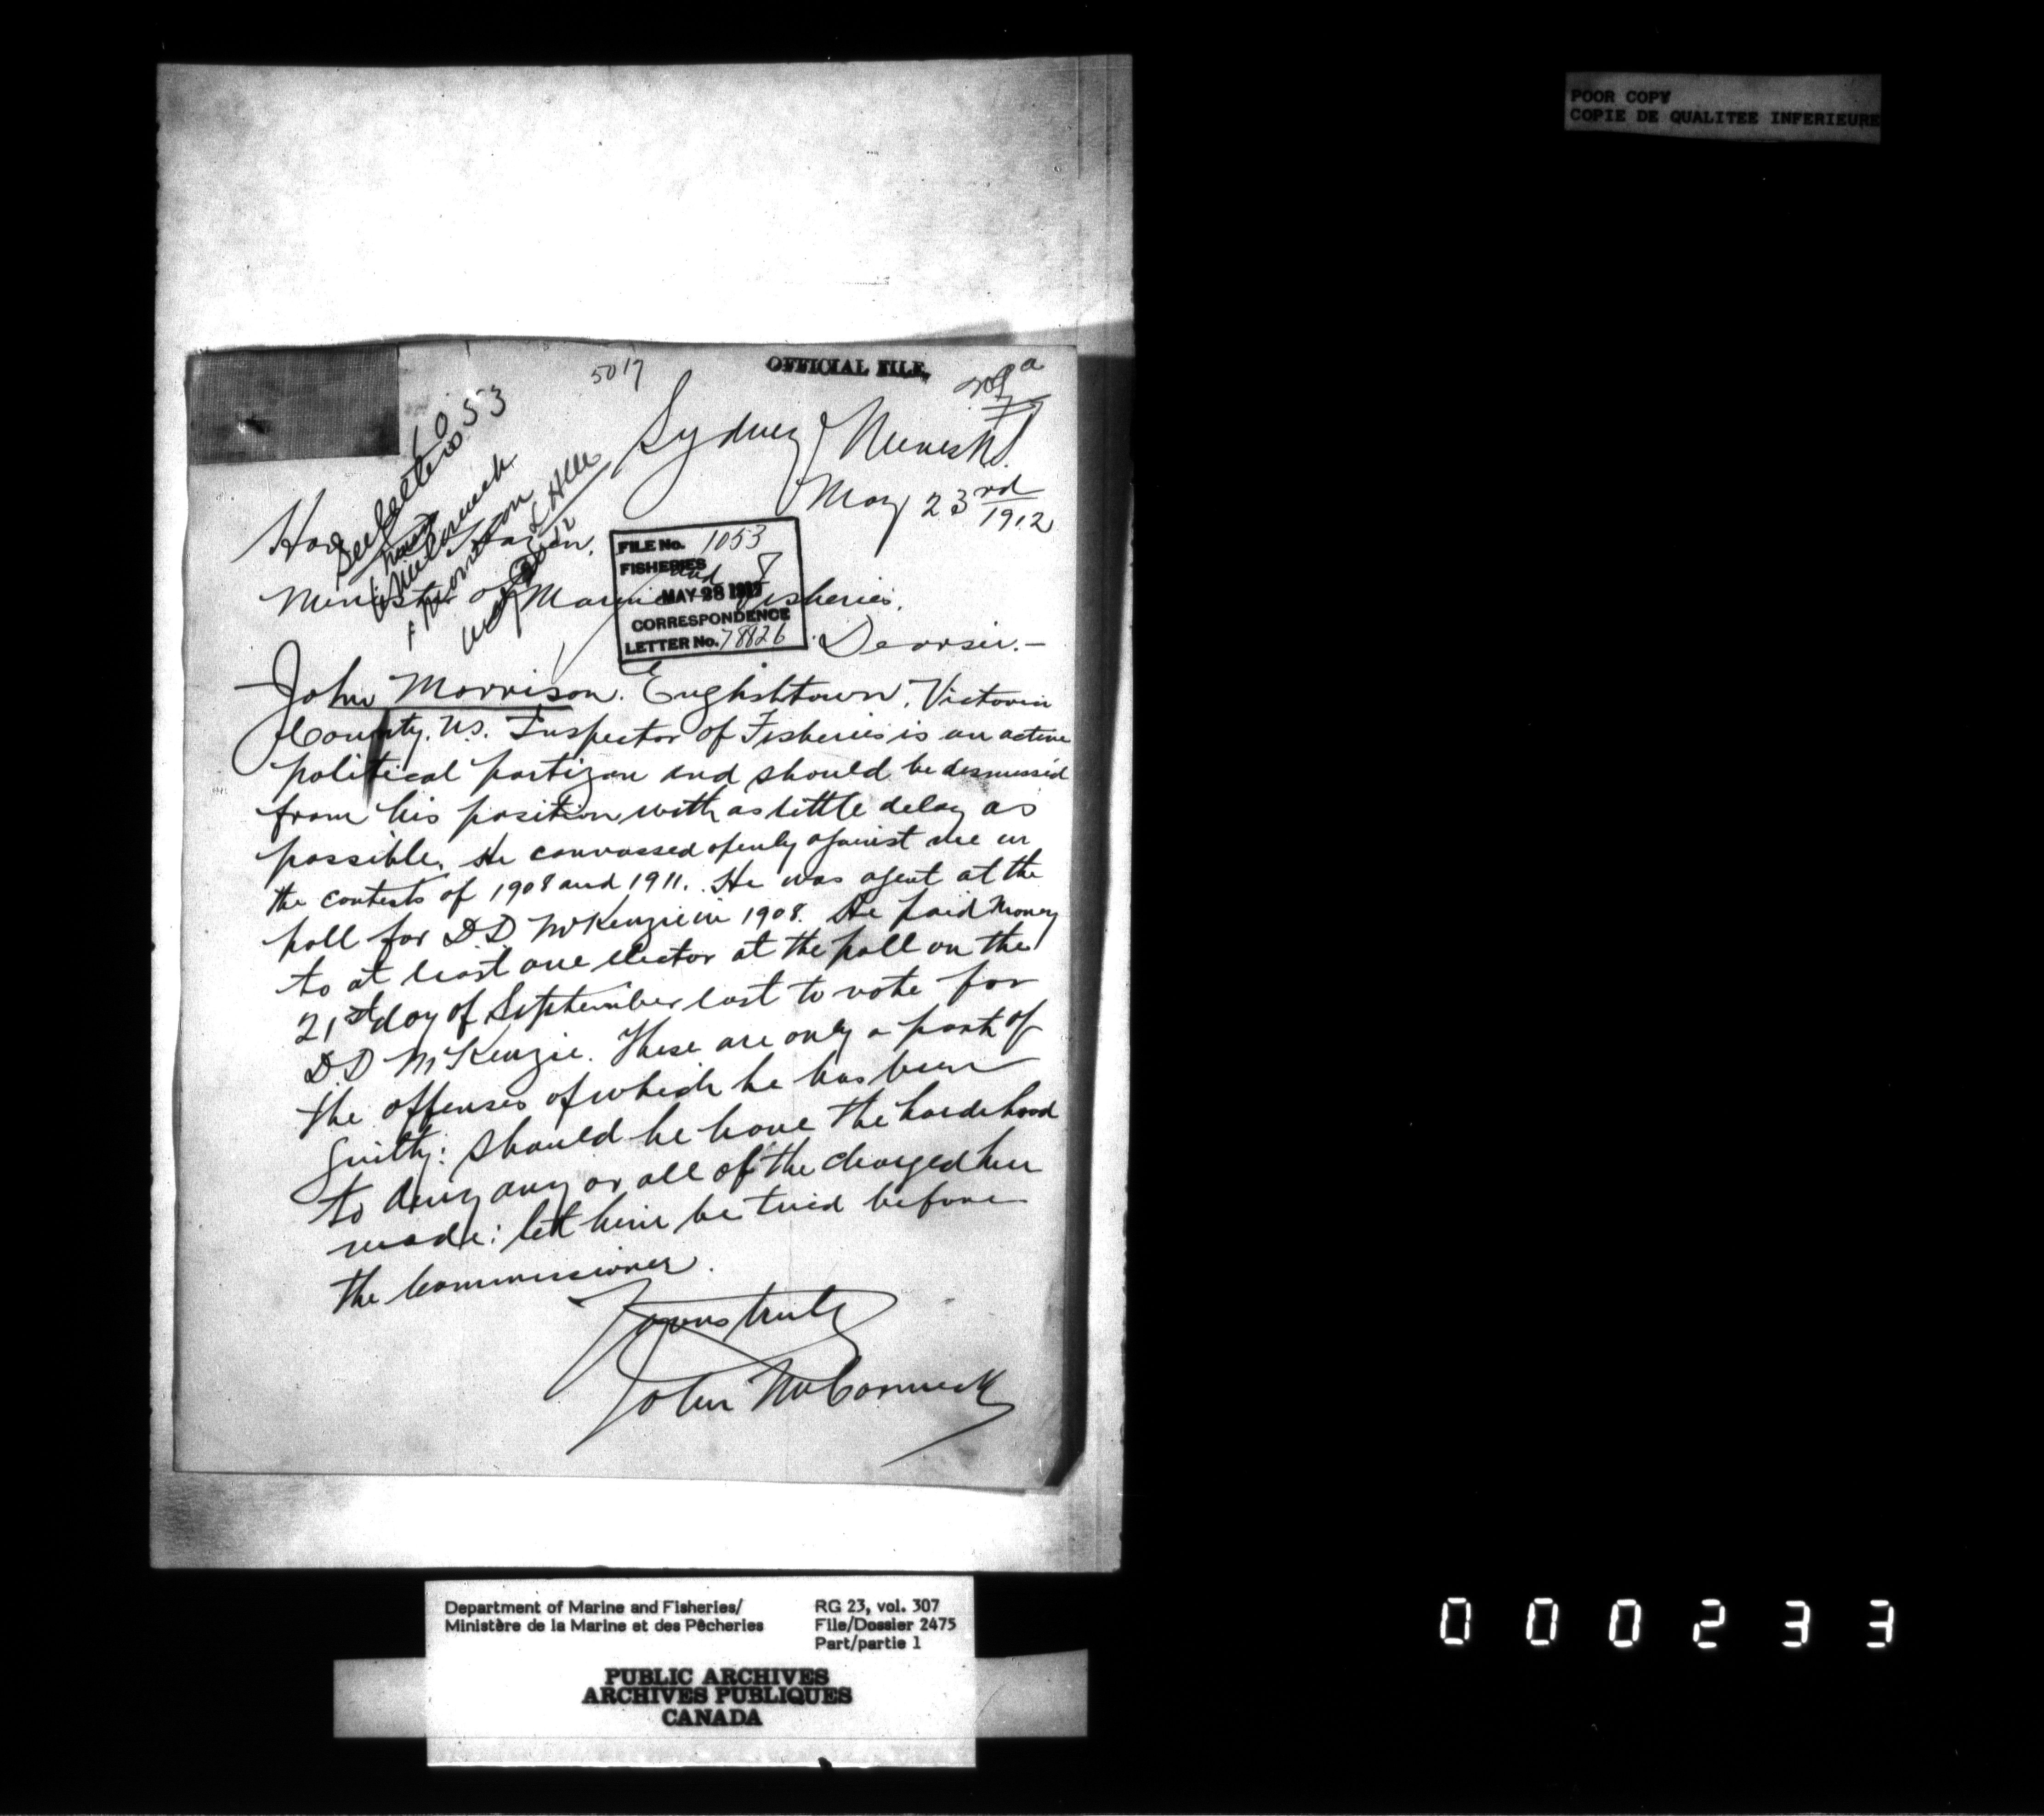 POOR COPY
COPIE DE QUALITEE INFERIEURE
5017
OFFICIAL FILE
1053
See letters
Sydney Mines N.S.
May 23rd
1912
Hon Hazen.
Minister of Marine and Fisheries.
FILE No. 1053
FISHERIES
MAY 28 1912
CORRESPONDENCE
LETTER No. 78826
Dear sir.—
John Morrison. Englishtown, Victoria
County. N.S. Inspector of Fisheries is an active
political partizan and should be dismissed
from his position with as little delay as
possible. He canvassed openly against me in
the contests of 1908 and 1911. He was agent at the
poll for D.D. McKenzie in 1908. He paid money
to at least one elector at the poll on the
21st day of September last to vote for
D.D McKenzie. These are only a part of
the offenses of which he has been
guilty: should he have the hardihood
to deny any or all of the charges here
made: let him be tried before
the Commissioner.
Yours truly
John McCormick
Department of Marine and Fisheries/
Ministère de la Marine et des Pêcheries
RG 23, vol. 307
File/Dossier 2475
Part/partie 1
PUBLIC ARCHIVES
ARCHIVES PUBLIQUES
CANADA
000233